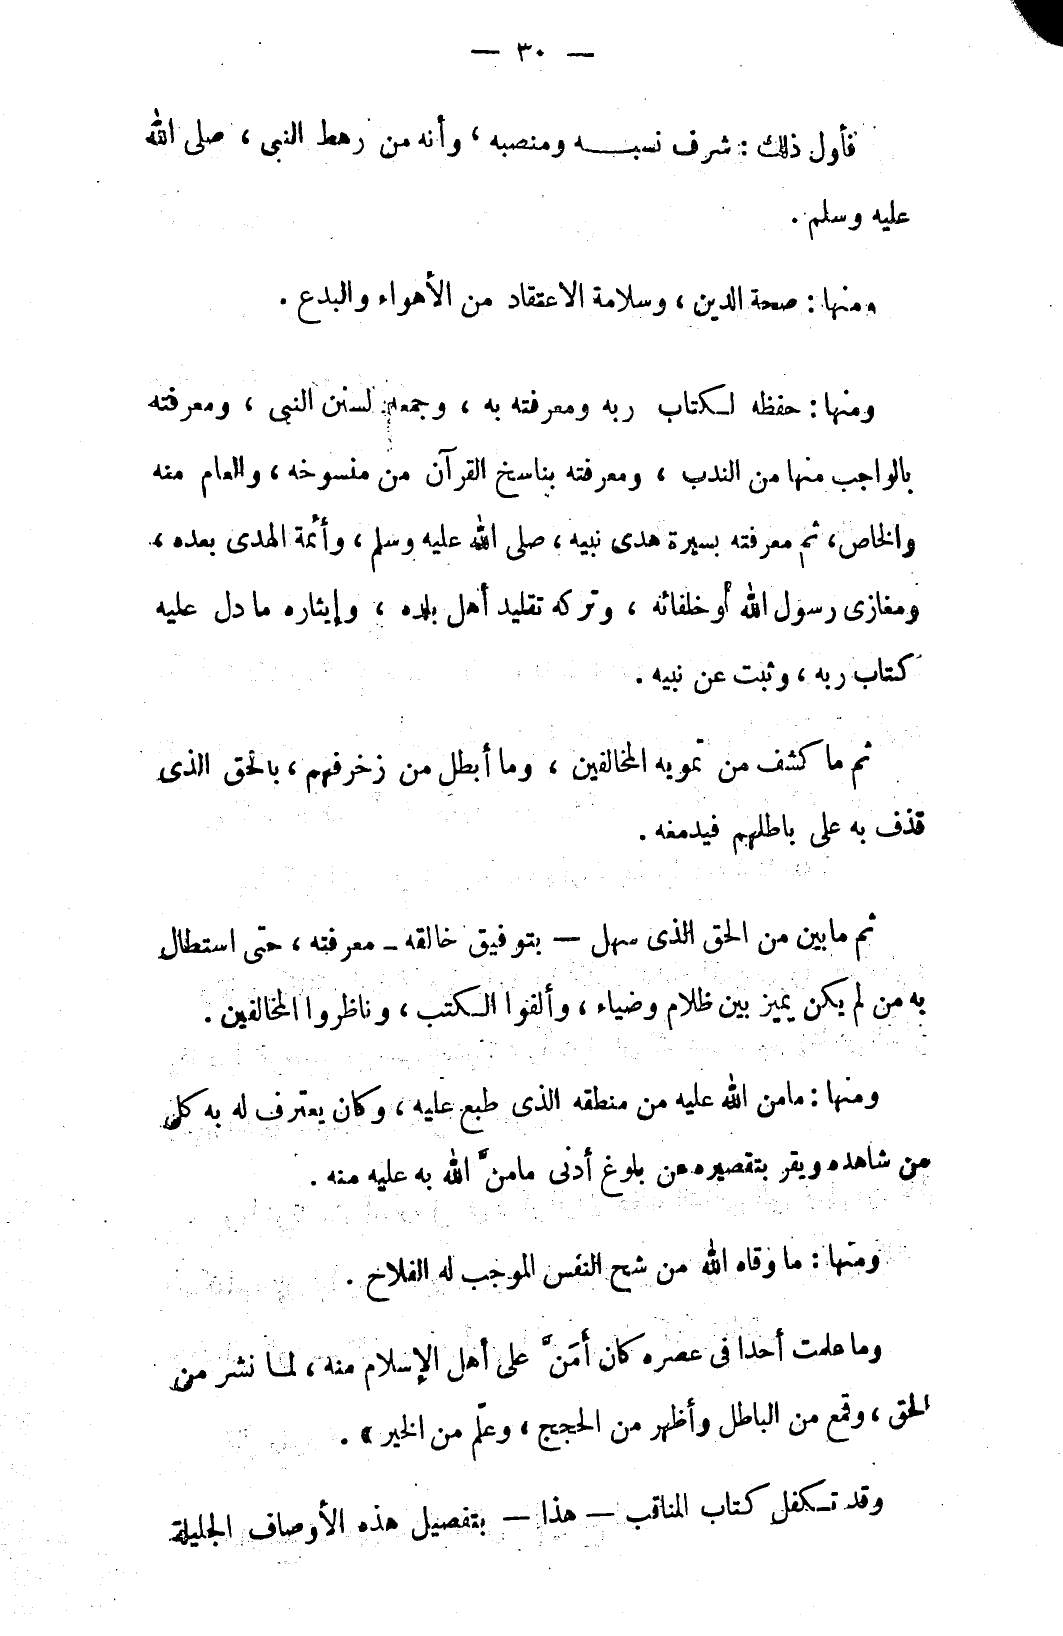 — ٣٠ —
فأول ذلك : شرف نسبـــه ومنصبه ، وأنه من رهط النبى ، صلى الله
عليه وسلم .
ومنها : صحة الدين ، وسلامة الاعتقاد من الأهواء والبدع .
ومنها : حفظه لكتاب ربه ومعرفته به ، وجمعه لسنن النبى ، ومعرفته
بالواجب منها من الندب ، ومعرفته بناسخ القرآن من منسوخه ، والعام منه
والخاص ، ثم معرفته بسيرة هدى نبيه ، صلى الله عليه وسلم ، وأئمة الهدى بعده ،
ومغازى رسول الله أو خلفائه ، وتركه تقليد أهل بلده ، وإيثاره ما دل عليه
كتاب ربه ، وثبت عن نبيه .
ثم ما كشف من تمويه المخالفين ، وما أبطل من زخرفهم ، بالحق الذى
قذف به على باطلهم فيدمغه .
ثم ما بين من الحق الذى سهل — بتوفيق خالقه - معرفته ، حتى استطال
به من لم يكن يميز بين ظلام وضياء ، وألفوا الكتب ، وناظروا المخالفين .
ومنها : مامن الله عليه من منطقه الذى طبع عليه ، وكان يعترف له به كل
من شاهده ويقر بتقصيره عن بلوغ أدنى مامنَّ الله به عليه منه .
ومنها : ما وقاه الله من شح النفس الموجب له الفلاح .
وما علمت أحدا فى عصره كان أمَنَّ على أهل الإسلام منه ، لما نشر من
الحق ، وقمع من الباطل وأظهر من الحجج ، وعلّم من الخير » .
وقد تكفل كتاب المناقب — هذا — بتفصيل هذه الأوصاف الجليلة